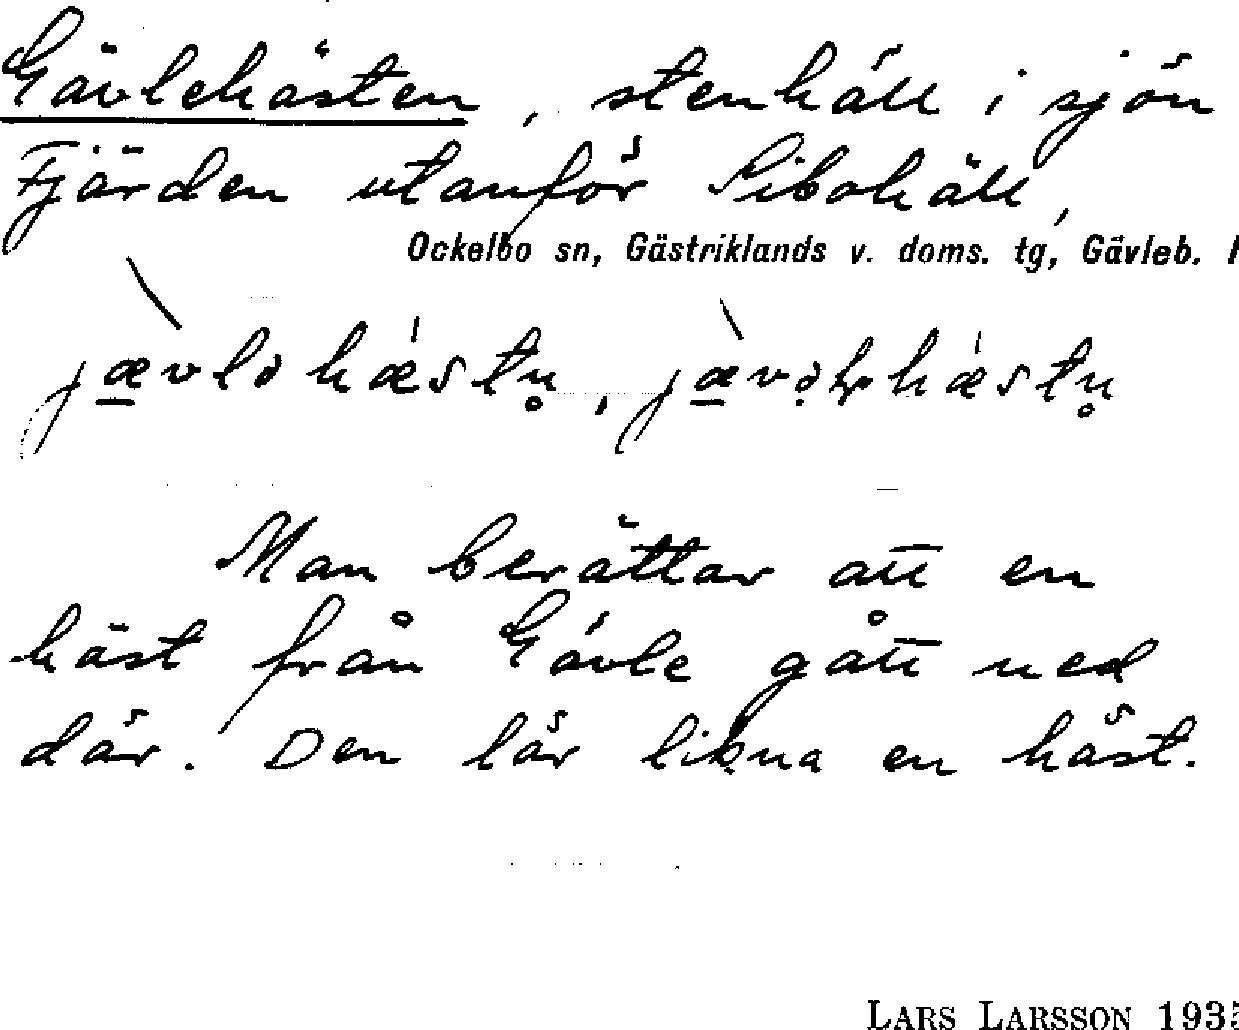 Gävlehästen, stenhäll i sjön
Fjärden utanför Sibohäll,
Ockelbo sn, Gästriklands v. doms. tg, Gävleb. l
Man berättar att en
häst från Gävle gått ned
där. Den lär likna en häst.
LARS LARSSON 1935